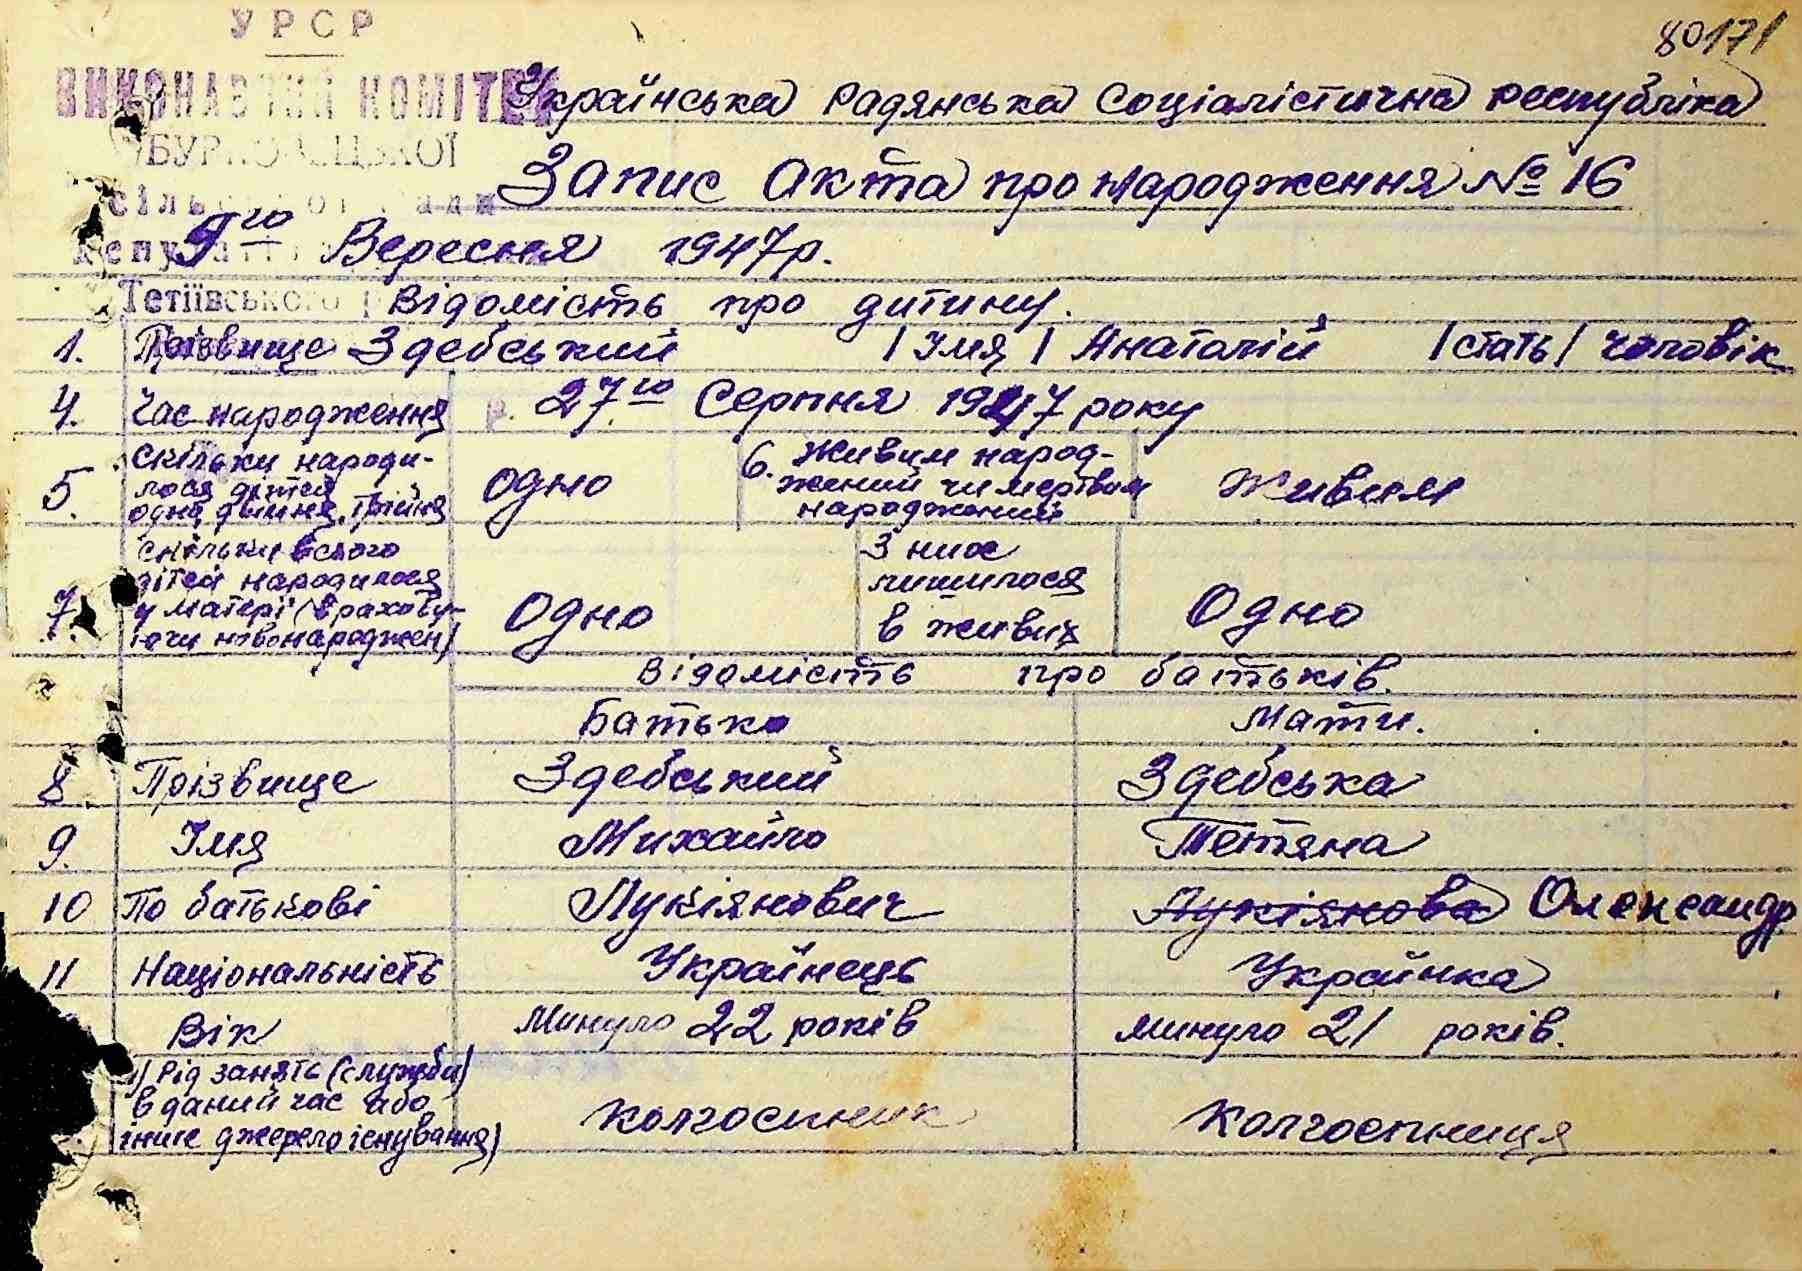 УРСР
80171
ВИКОНАВЧИЙ КОМІТЕТ
Українська Радянська Соціалістична республіка
Запис акта про народження № 16
9го Вересня 1947р.
Тетіївського
Відомість про дитину.
1. Прізвище Здебський /Імя/ Анатолій /стать/ чоловік
4. Час народження 27го Серпня 1947 року
5. Скільки народи-
лося дітей
одна, двійня, трійня
Одно
6. Живим народ-
жений чи мертвим
народжений
Живим
7. Скільки всього
дітей народилося
у матері (врахову-
ючи новонароджен)
Одно
З них
лишилося
в живих
Одно
Відомість про батьків.
Батько Мати.
8. Прізвище Здебський Здебська
9. Імя Михайло Тетяна
10 По батькові Лукіянович Лукіянова Олександр
11 Національність Українець Українка
Вік Минуло 22 років Минуло 21 років.
1/ Рід занять (служби)
в даний час або
інше джерело існування)
колгоспник Колгоспниця